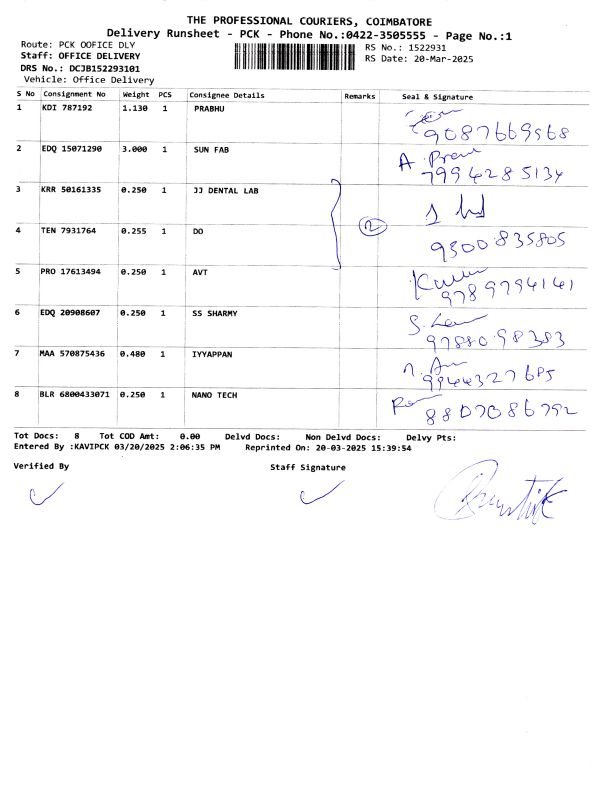 THE PROFESSIONAL COURIERS, COIMBATORE
Delivery Runsheet - PCK - Phone No.:0422-3505555 - Page No.:1
Route: PCK OOFICE DLY
RS No.: 1522931
Staff: OFFICE DELIVERY
RS Date: 20-Mar-2025
DRS No.: DCJB152293101
Vehicle: Office Delivery
S No Consignment No Weight PCS Consignee Details Remarks Seal & Signature
1 KDI 787192 1.130 1 PRABHU
9087669568
2 EDQ 15071290 3.000 1 SUN FAB A
7994285134
3 KRR 50161335 0.250 1 JJ DENTAL LAB
2
4 TEN 7931764 0.255 1 DO
9500835805
5 PRO 17613494 0.250 1 AVT
9789794141
6 EDQ 20908607 0.250 1 SS SHARMY
9788098383
7 MAA 570875436 0.480 1 IYYAPPAN
9944327685
8 BLR 6800433071 0.250 1 NANO TECH
8807086792
Tot Docs: 8 Tot COD Amt: 0.00 Delvd Docs: Non Delvd Docs: Delvy Pts:
Entered By :KAVIPCK 03/20/2025 2:06:35 PM Reprinted On: 20-03-2025 15:39:54
Verified By Staff Signature